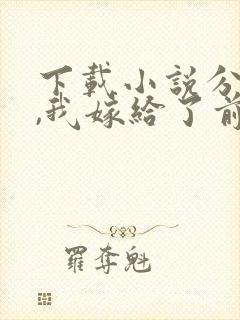 下載小說分
,我嫁給了前
羅奪魁